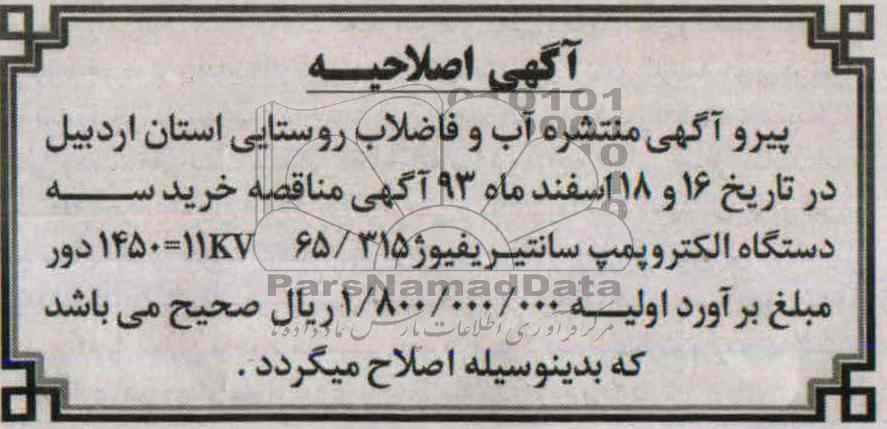 آگهی اصلاحیه
پیرو آگهی منتشره آب و فاضلاب روستایی استان اردبیل
در تاریخ ۱۶ و ۱۸ اسفند ماه ۹۳ آگهی مناقصه خرید سه
دستگاه الکتروپمپ سانتیریفیوژ ۳۱۵/ ۶۵ ۱۱KV=۱۴۵۰ دور
ParsNamadData
مبلغ برآورد اولیه ۱/۸۰۰/۰۰۰/۰۰۰ ریال صحیح می باشد
مرکز فرآوری اطلاعات پارس نماد داده ها
که بدینوسیله اصلاح میگردد .